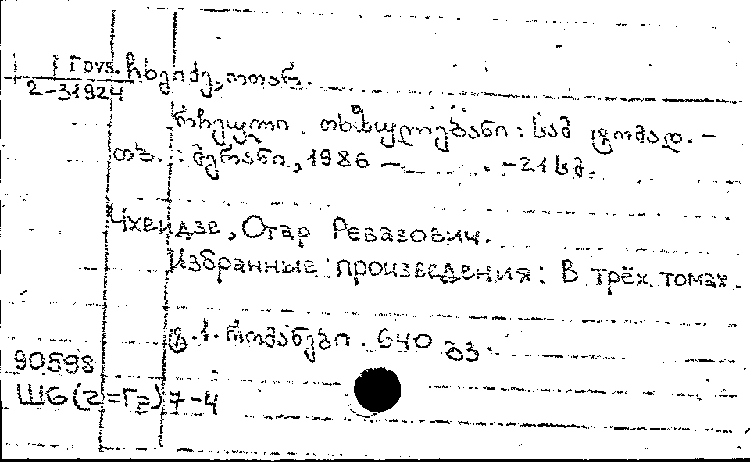 Г DVS. ჩხეიძე, ოთარ.
2-31924
რჩეული თხზულებანი: სამ ტომად. –
თბ.: მერანი, 1986 – . – 21 სმ.
Чхеидзе, Отар Ревазович.
Избранные произведения: В трёх томах.
ტ. 1. რომანები. 640 გვ.
90598
Ш6(2=Гз)7-4